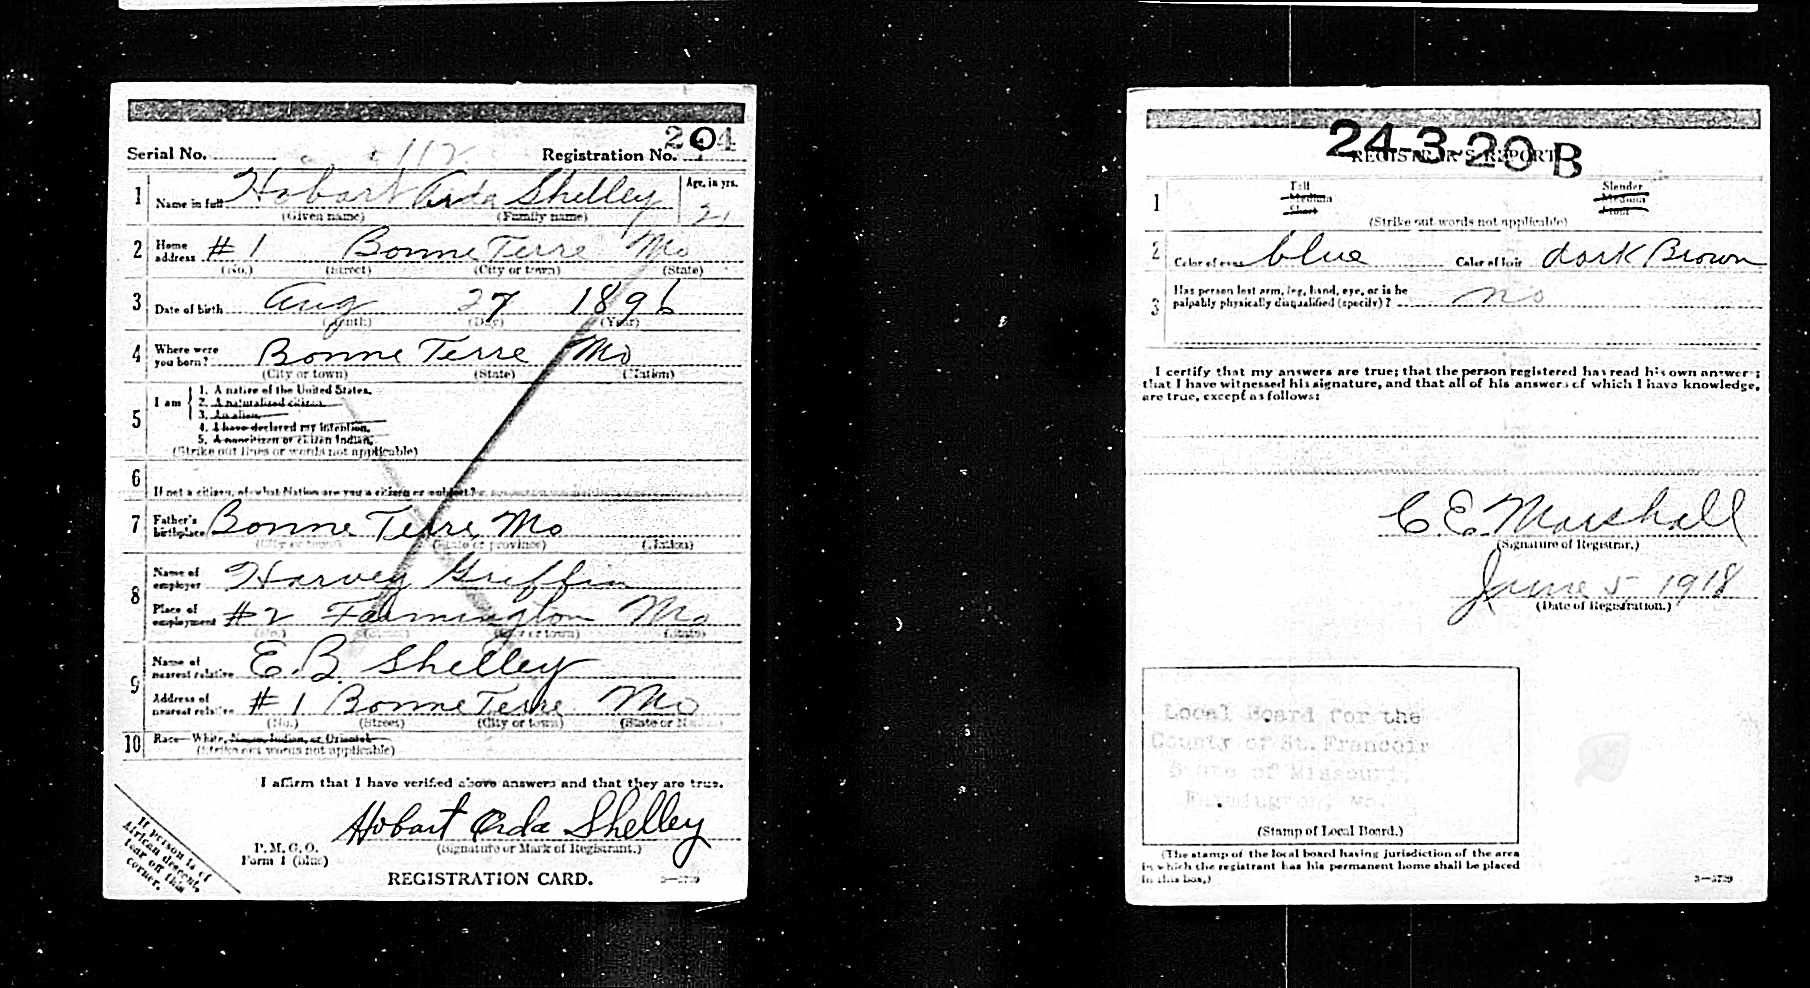 204
Serial No. 112 Registration No.
1 Name in full Hobart Orda Shelley Age, in yrs. 21
(Given name) (Family name)
2 Home address #1 Bonne Terre Mo
(No.) (Street) (City or town) (State)
3 Date of birth Aug 27 1896
(Month) (Day) (Year)
4 Where were you born? Bonne Terre Mo
(City or town) (State) (Nation)
5 I am
1. A native of the United States.
2. A naturalized citizen.
3. An alien.
4. I have declared my intention.
5. A noncitizen or citizen Indian.
(Strike out lines or words not applicable)
6 If not a citizen, of what Nation are you a citizen or subject?
7 Father's birthplace Bonne Terre, Mo
(City or town) (State or province) (Nation)
8 Name of employer Harvey Griffin
Place of employment #2 Farmington Mo
(No.) (Street) (City or town) (State)
9 Name of nearest relative E.B. Shelley
Address of nearest relative #1 Bonne Terre Mo
(No.) (Street) (City or town) (State or Nation)
10 Race—White, Negro, Indian, or Oriental
(Strike out words not applicable)
I affirm that I have verified above answers and that they are true.
Hobart Orda Shelley
P. M. G. O.
Form 1 (blue)
(Signature or Mark of Registrant.)
REGISTRATION CARD.
3—3739
If person is of
African descent,
tear off this
corner.
24-3-20 B
REGISTRAR'S REPORT
1 Tall Slender
Medium Medium
Short Stout
(Strike out words not applicable)
2 Color of eyes blue Color of hair dark Brown
3 Has person lost arm, leg, hand, eye, or is he
palpably physically disqualified (specify)? no
I certify that my answers are true; that the person registered has read his own answers;
that I have witnessed his signature, and that all of his answers of which I have knowledge,
are true, except as follows:
C. E. Marshall
(Signature of Registrar.)
June 5 1918
(Date of Registration.)
Local Board for the
County of St. Francois
State of Missouri,
Farmington, Mo.
(Stamp of Local Board.)
(The stamp of the local board having jurisdiction of the area
in which the registrant has his permanent home shall be placed
in this box.)
3—3739